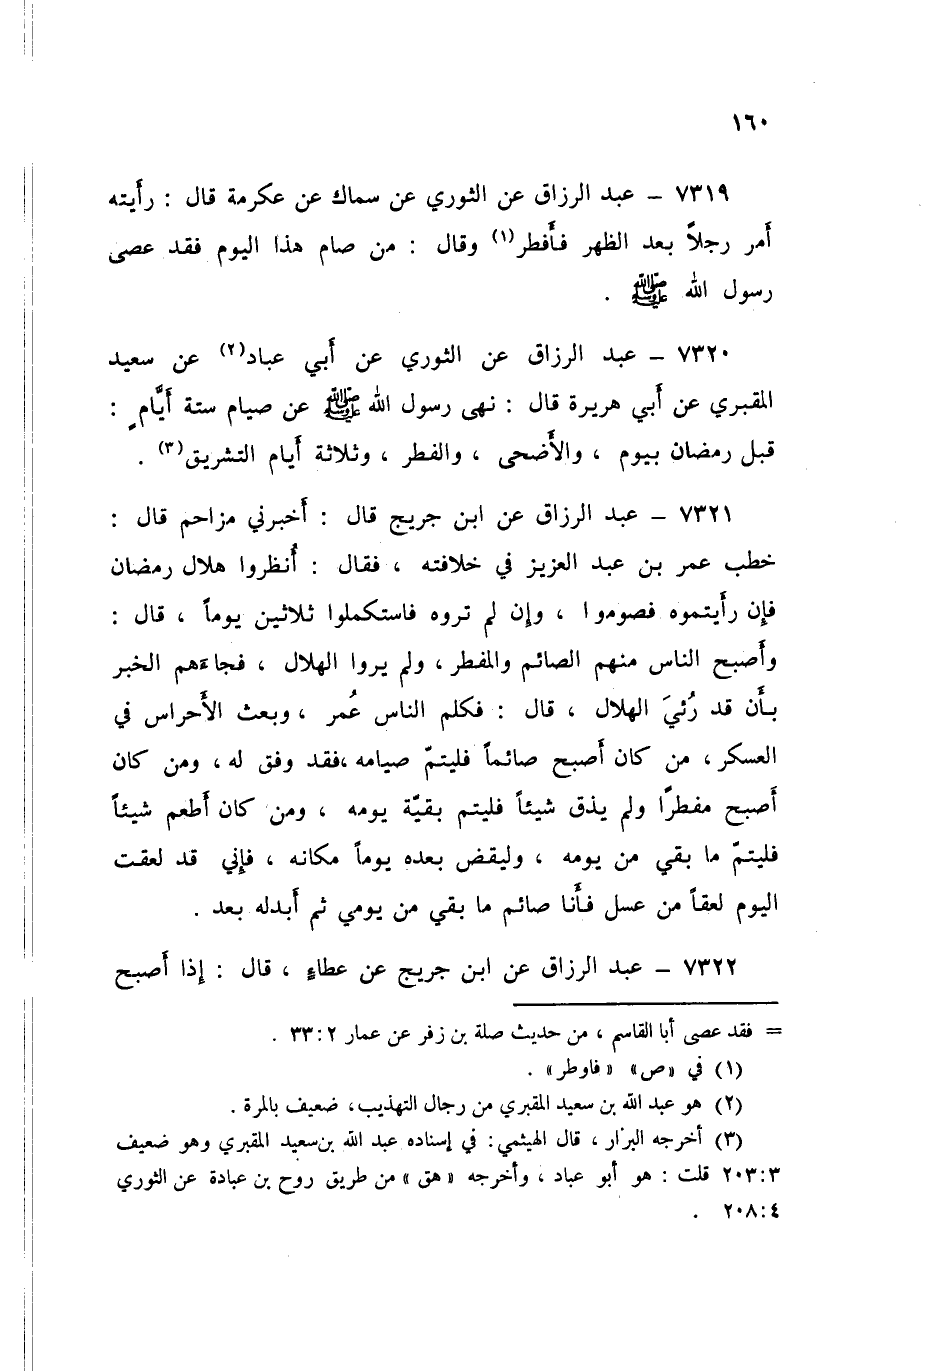 ١٦٠
٧٣١٩ – عبد الرزاق عن الثوري عن سماك عن عكرمة قال : رأَيته
أمر رجلاً بعد الظهر فأَفطر(١) وقال : من صام هذا اليوم فقد عصى
رسول الله ﷺ .
٧٣٢٠ – عبد الرزاق عن الثوري عن أَبي عباد(٢) عن سعيد
المقبري عن أَبي هريرة قال : نهى رسول الله ﷺ عن صيام ستة أَيَّامٍ :
قبل رمضان بيوم ، والأَضحى ، والفطر ، وثلاثة أَيام التشريق(٣) .
٧٣٢١ – عبد الرزاق عن ابن جريج قال : أَخبرني مزاحم قال :
خطب عمر بن عبد العزيز في خلافته ، فقال : أُنظروا هلال رمضان
فإِن رأَيتموه فصوموا ، وإِن لم تروه فاستكملوا ثلاثين يوماً ، قال :
وأَصبح الناس منهم الصائم والمفطر ، ولم يروا الهلال ، فجاءهم الخبر
بأَن قد رُئيَ الهلال ، قال : فكلم الناس عُمر ، وبعث الأَحراس في
العسكر ، من كان أَصبح صائماً فليتمّ صيامه ،فقد وفق له ، ومن كان
أَصبح مفطرًا ولم يذق شيئاً فليتم بقيّة يومه ، ومن كان أَطعم شيئاً
فليتمّ ما بقي من يومه ، وليقض بعده يوماً مكانه ، فإِني قد لعقت
اليوم لعقاً من عسل فأَنا صائم ما بقي من يومي ثم أَبدله بعد .
٧٣٢٢ – عبد الرزاق عن ابن جريج عن عطاءٍ ، قال : إِذا أَصبح
= فقد عصى أبا القاسم ، من حديث صلة بن زفر عن عمار ٢ : ٣٣ .
(١) في «ص» «فاوطر» .
(٢) هو عبد الله بن سعيد المقبري من رجال التهذيب، ضعيف بالمرة .
(٣) أخرجه البزار ، قال الهيثمي: في إسناده عبد الله بن سعيد المقبري وهو ضعيف
٣ : ٢٠٣ قلت : هو أبو عباد ، وأخرجه «هق» من طريق روح بن عبادة عن الثوري
٤ : ٢٠٨ .